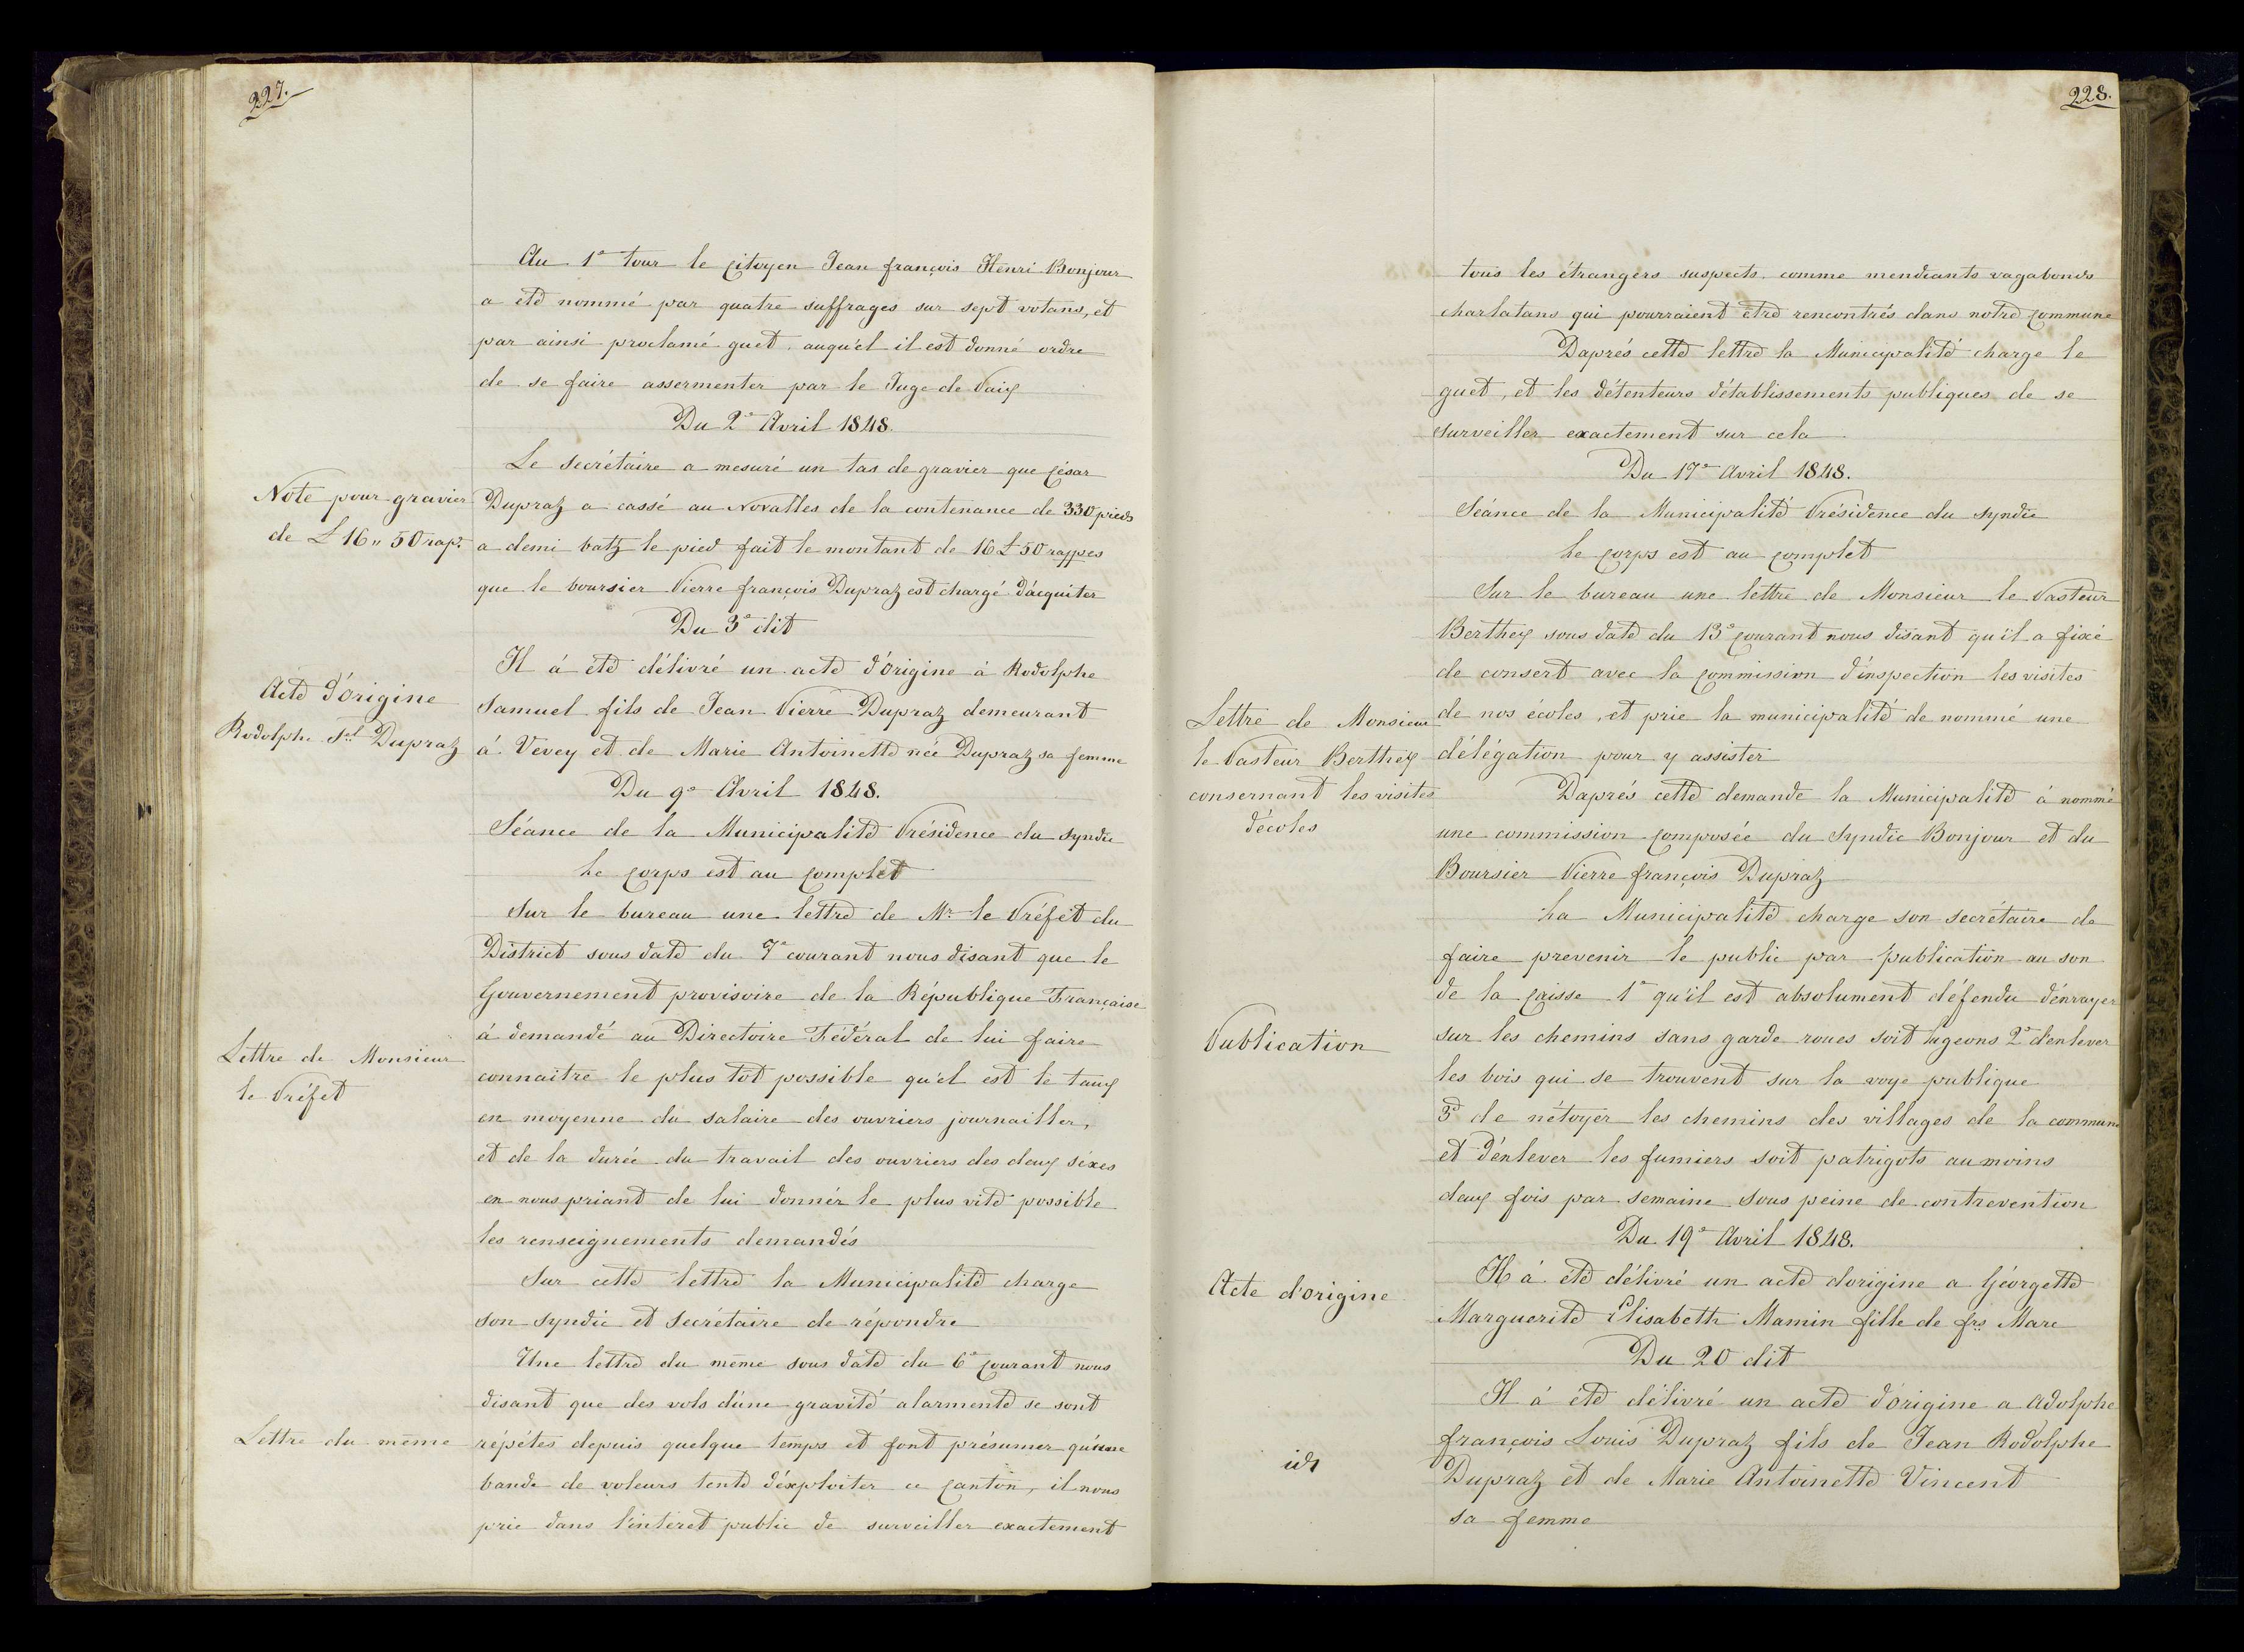 227.
Au 1e tour le citoyen Jean françois Henri Bonjour
a été nommé par quatre suffrages sur sept votans, et
par ainsi proclamé guet auqu'el il est donné ordre
de se faire assermenter par le Juge de Paix
Du 2e Avril 1848.
Le Secrétaire a mesuré un tas de gravier que César
Note pour gravier
de L 16 " 50 rap.
Dupraz a cassé au Novalles de la contenance de 330 pieds
a demi batz le pied fait le montant de 16 L 50 rappes
que le boursier Pierre françois Dupraz est chargé d'acquiter
Du 3e dit
Il á été délivré un acte d'Origine à Rodolphe
Acte d'Origine
Rodolphe Sel Dupraz
Samuel fils de Jean Pierre Dupraz demeurant
á Vevey et de Marie Antoinette née Dupraz sa femme
Du 9e Avril 1848.
Séance de la Municipalité Présidence du Syndic
Le Corps est au Complet
Sur le bureau une lettre de Mr le Préfet du
District sous date du 7e courant nous disant que le
Gouvernement provisoire de la République Française
á demandé au Directoire Fédéral de lui faire
Lettre de Monsieur
le Préfet
connaitre le plus tot possible qu'el est le taux
en moyenne du salaire des ouvriers journailler,
et de la durée du travail des ouvriers des deux séxes
en nous priant de lui donnér le plus vite possible
les renseignements demandés
Sur cette lettre la Municipalité charge
son Syndic et Secrétaire de répondre
Une lettre du même sous date du 6e courant nous
disant que des vols d'une gravité alarmente se sont
Lettre du même
répétes depuis quelque temps et font présumer qu'une
bande de voleurs tente d'éxploiter ce Canton, il nous
prie dans l'intéret public de surveiller exactement
228.
tous les étrangers suspects comme mendiants vagabonds
charlatans qui pourraient etre rencontrés dans notre Commune
Daprés cette lettre la Municipalité charge le
guet, et les détenteurs d'établissements publiques de se
surveiller exactement sur cela
Du 17e Avril 1848.
Séance de la Municipalité Présidence du Syndic
Le Corps est au Complet
Sur le bureau une lettre de Monsieur le Pasteur
Berthex sous date du 13e Courant nous disant qu'il a fixé
de consert avec la Commission d'inspection les visites
Lettre de Monsieur
le Pasteur Berthex
consernant les visites
d'écoles
de nos écoles, et prie la municipalité de nommé une
délégation pour y assister
Daprés cette demande la Municipalité á nommé
une commission Composée du Syndic Bonjour et du
Boursier Pierre françois Dupraz
La Municipalité charge son secrétaire de
faire prevenir le public par publication au son
de la Caisse 1e qu'il est absolument défendu d'énrayer
Publication
sur les chemins sans garde roues soit lugeons 2e d'enlever
les bois qui se trouvent sur la voye publique
3e de nétoyer les chemins des villages de la commune
et d'énlever les fumiers soit patrigots au moins
deux fois par semaine sous peine de contrevention
Du 19e Avril 1848.
Acte d'Origine
Il á été délivré un acte dorigine a Géorgette
Marguerite Elisabeth Mamin fille de frs Marc
Du 20 dit
Il á été délivré un acte d'origine a Adolphe
id
françois Louis Dupraz fils de Jean Rodolphe
Dupraz et de Marie Antoinette Vincent
sa femme